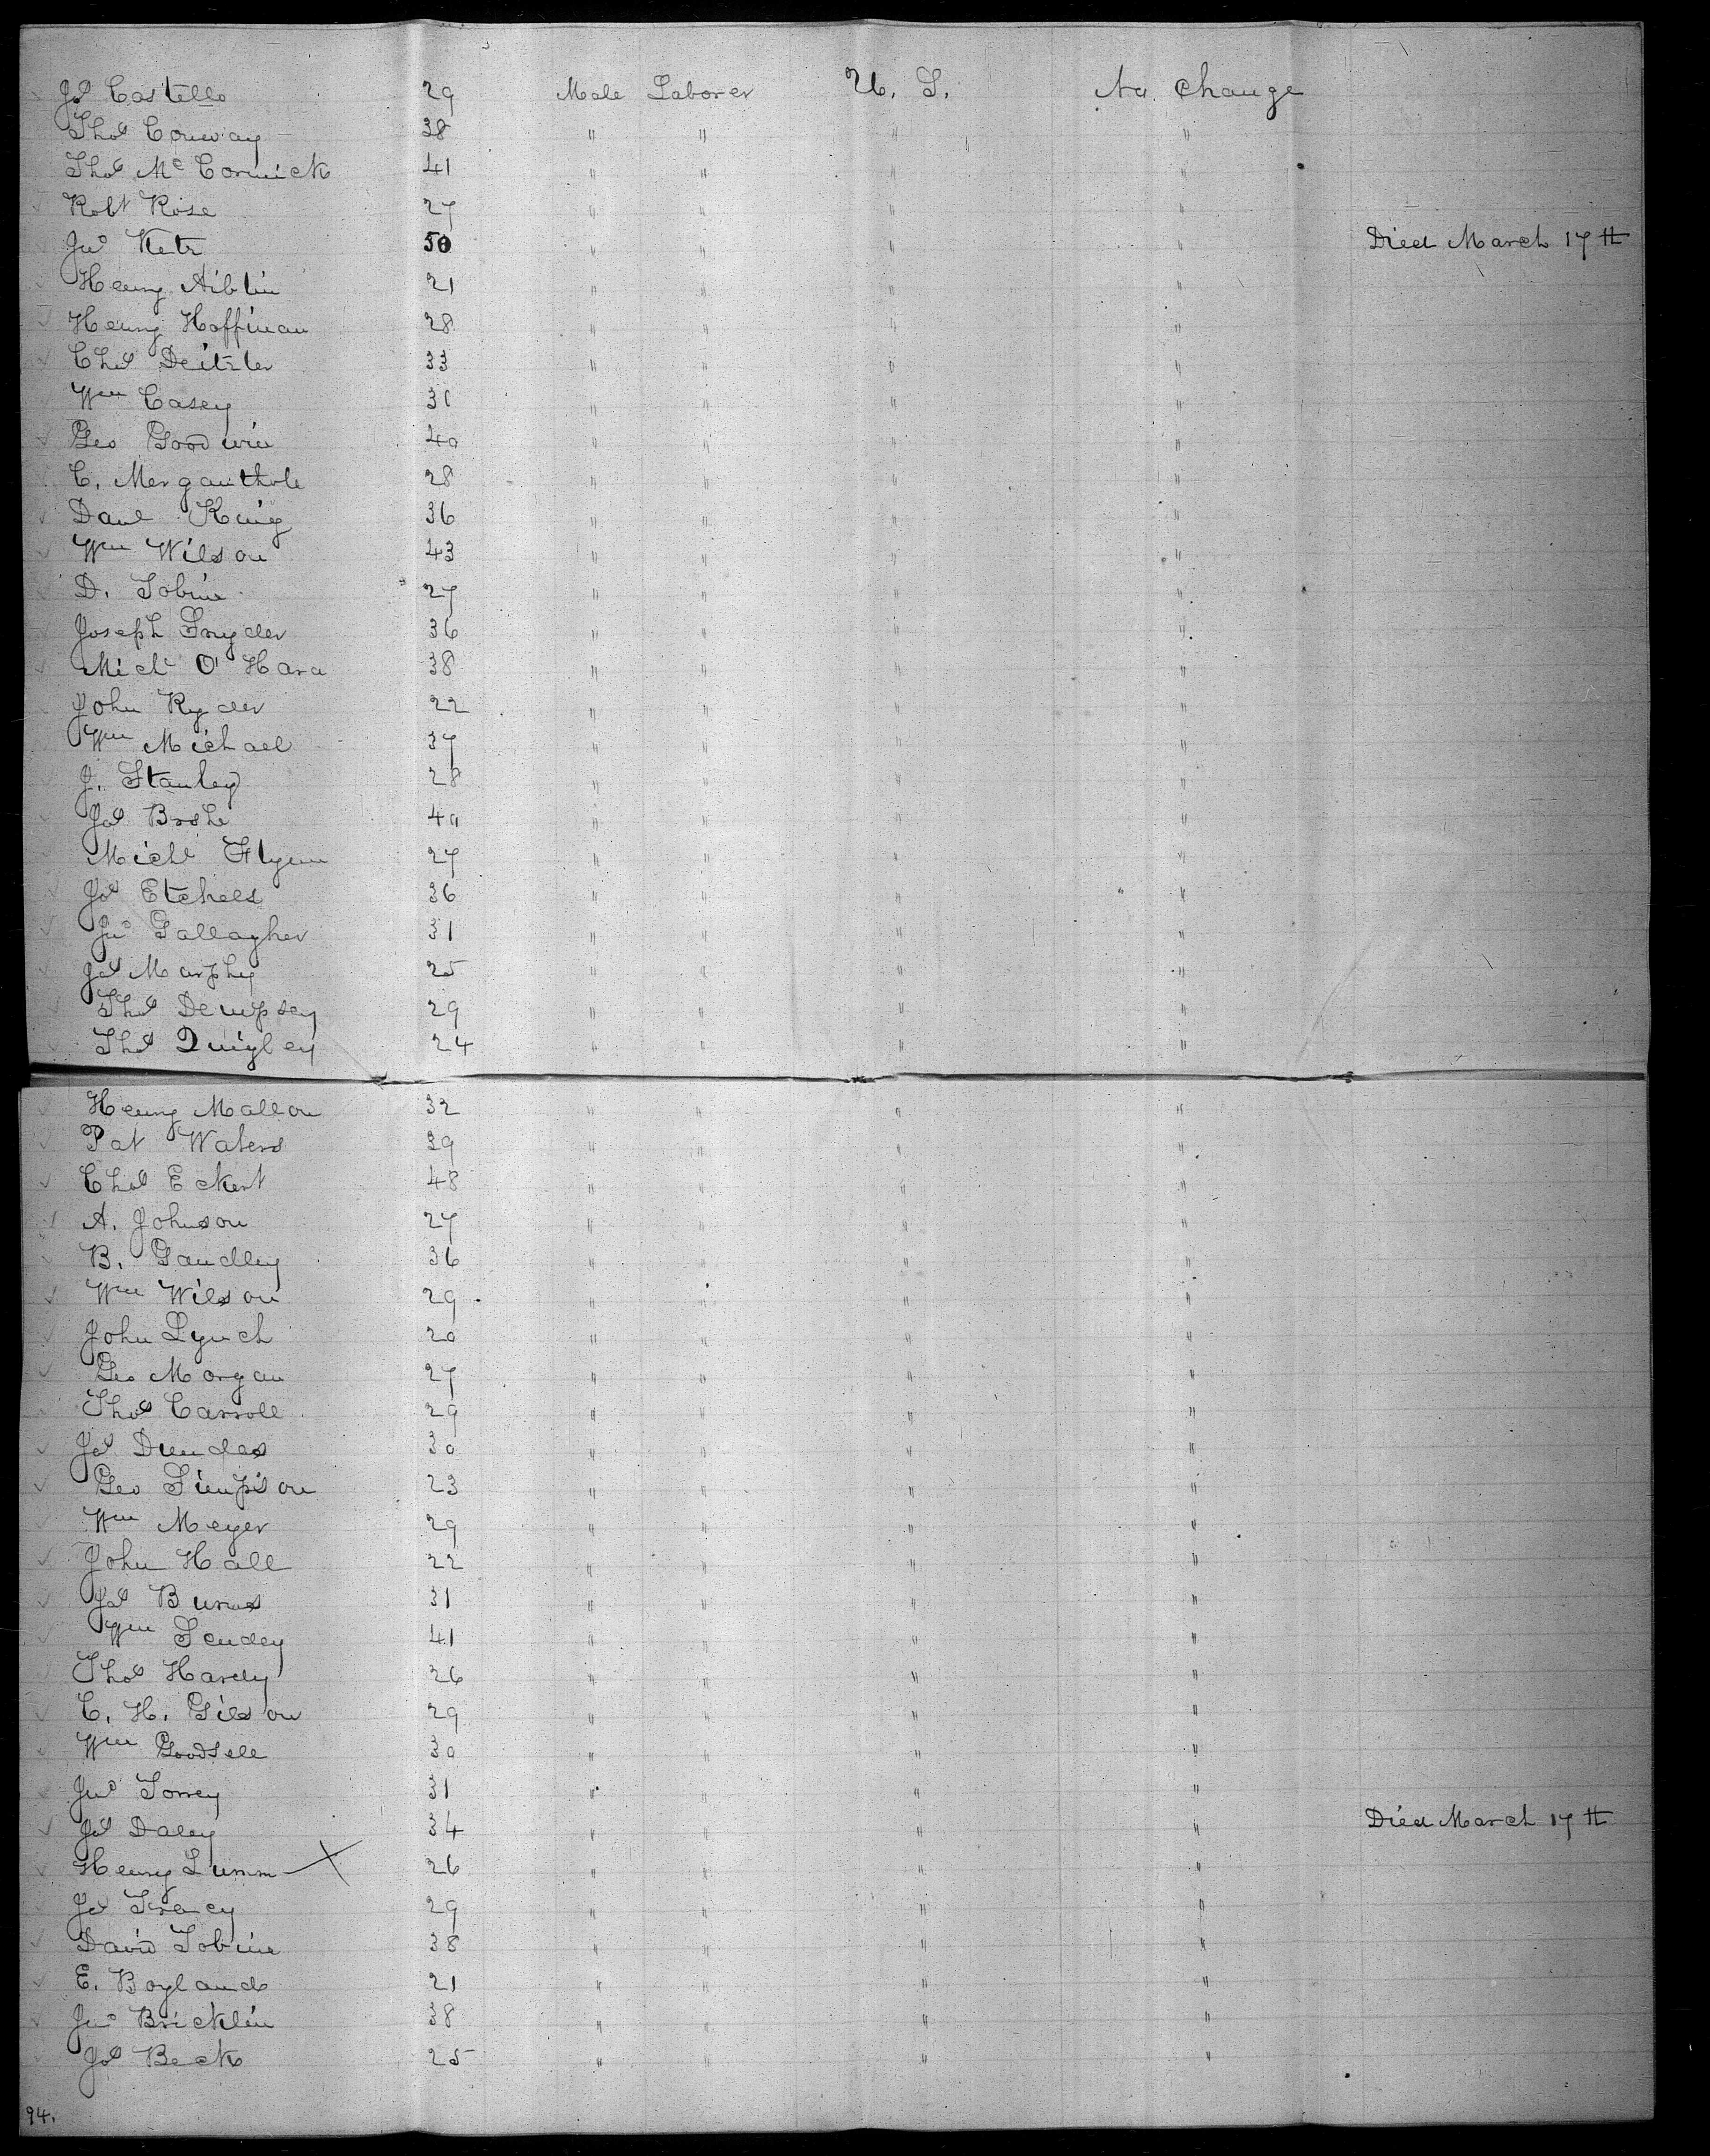 Jas Costello 29 Male Laborer U. S. No. Change
Thos Conway 38 " " " "
Thos Mc Cormick 41 " " " "
Robt Rose 27 " " " "
Jno 50 " " " " Died March 17th
Henry Niblin 21 " " " "
Henry Hoffman 28 " " " "
Chas Deitzler 33 " " " "
Wm Casey 31 " " " "
Geo Goodwin 40 " " " "
C. Merganthole 28 " " " "
Danl King 36 " " " "
Wm Wilson 43 " " " "
D. Tobine 27 " " " "
Joseph Snyder 36 " " " "
Michl O'Hara 38 " " " "
John Ryder 22 " " " "
Wm Michael 37 " " " "
J. Stanley 28 " " " "
Jas 40 " " " "
Michl Flynn 27 " " " "
Jas Etchels 36 " " " "
Jno Gallagher 31 " " " "
Jas Murphy 25 " " " "
Thos Dempsey 29 " " " "
Thos Quigley 24 " " " "
Henry Mallon 32 " " " "
Pat Waters 39 " " " "
Chas Eckert 48 " " " "
A. Johnson 27 " " " "
B. Gandley 36 " " " "
Wm Wilson 29 " " " "
John Lynch 20 " " " "
Geo Morgan 27 " " " "
Thos Carroll 29 " " " "
Jas Dundas 30 " " " "
Geo Simpson 23 " " " "
Wm Meyer 29 " " " "
John Hall 22 " " " "
Jas Burns 31 " " " "
Wm 41 " " " "
Thos Hardy 26 " " " "
C. H. Gilson 29 " " " "
Wm Goodsell 30 " " " "
Jno Torrey 31 " " " "
Jas Daley 34 " " " " Died March 17th
Henry Lumm X 26 " " " "
Jas Tracy 29 " " " "
David Tobine 38 " " " "
E. Boylands 21 " " " "
Jno Bricklin 38 " " " "
Jas Beck 25 " " " "
94.